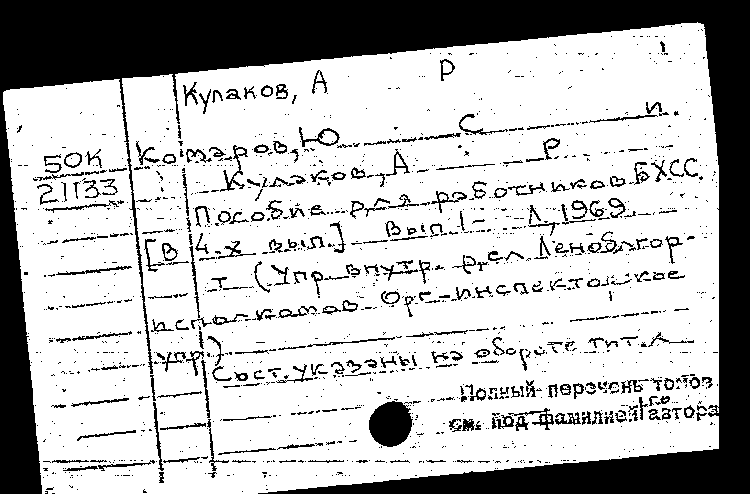 Кулаков, А Р
50К
21133
Комаров, Ю С и.
Кулаков, А Р
Пособие для работников БХСС.
[В 4-х вып.] Вып. 1- Л, 1969.
т (Упр. внутр. дел Леноблгор-
исполкомов Орг-инспекторское
упр.)
Сост. указаны на обороте тит. л
Полный перечень томов
см. под фамилией 1го автора